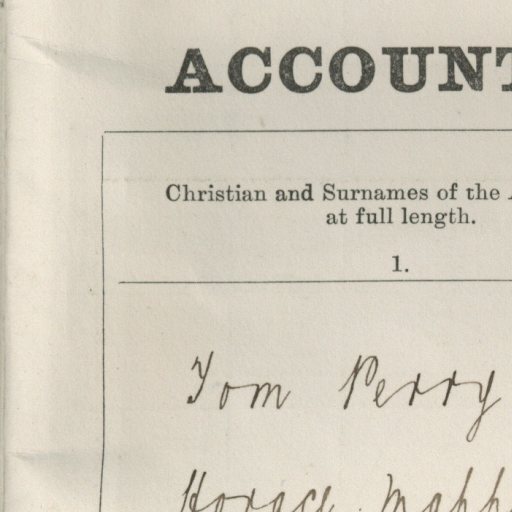 ACCOUNT
Christian and Surnames of the
at full length.
1.
Tom Perry
Horace